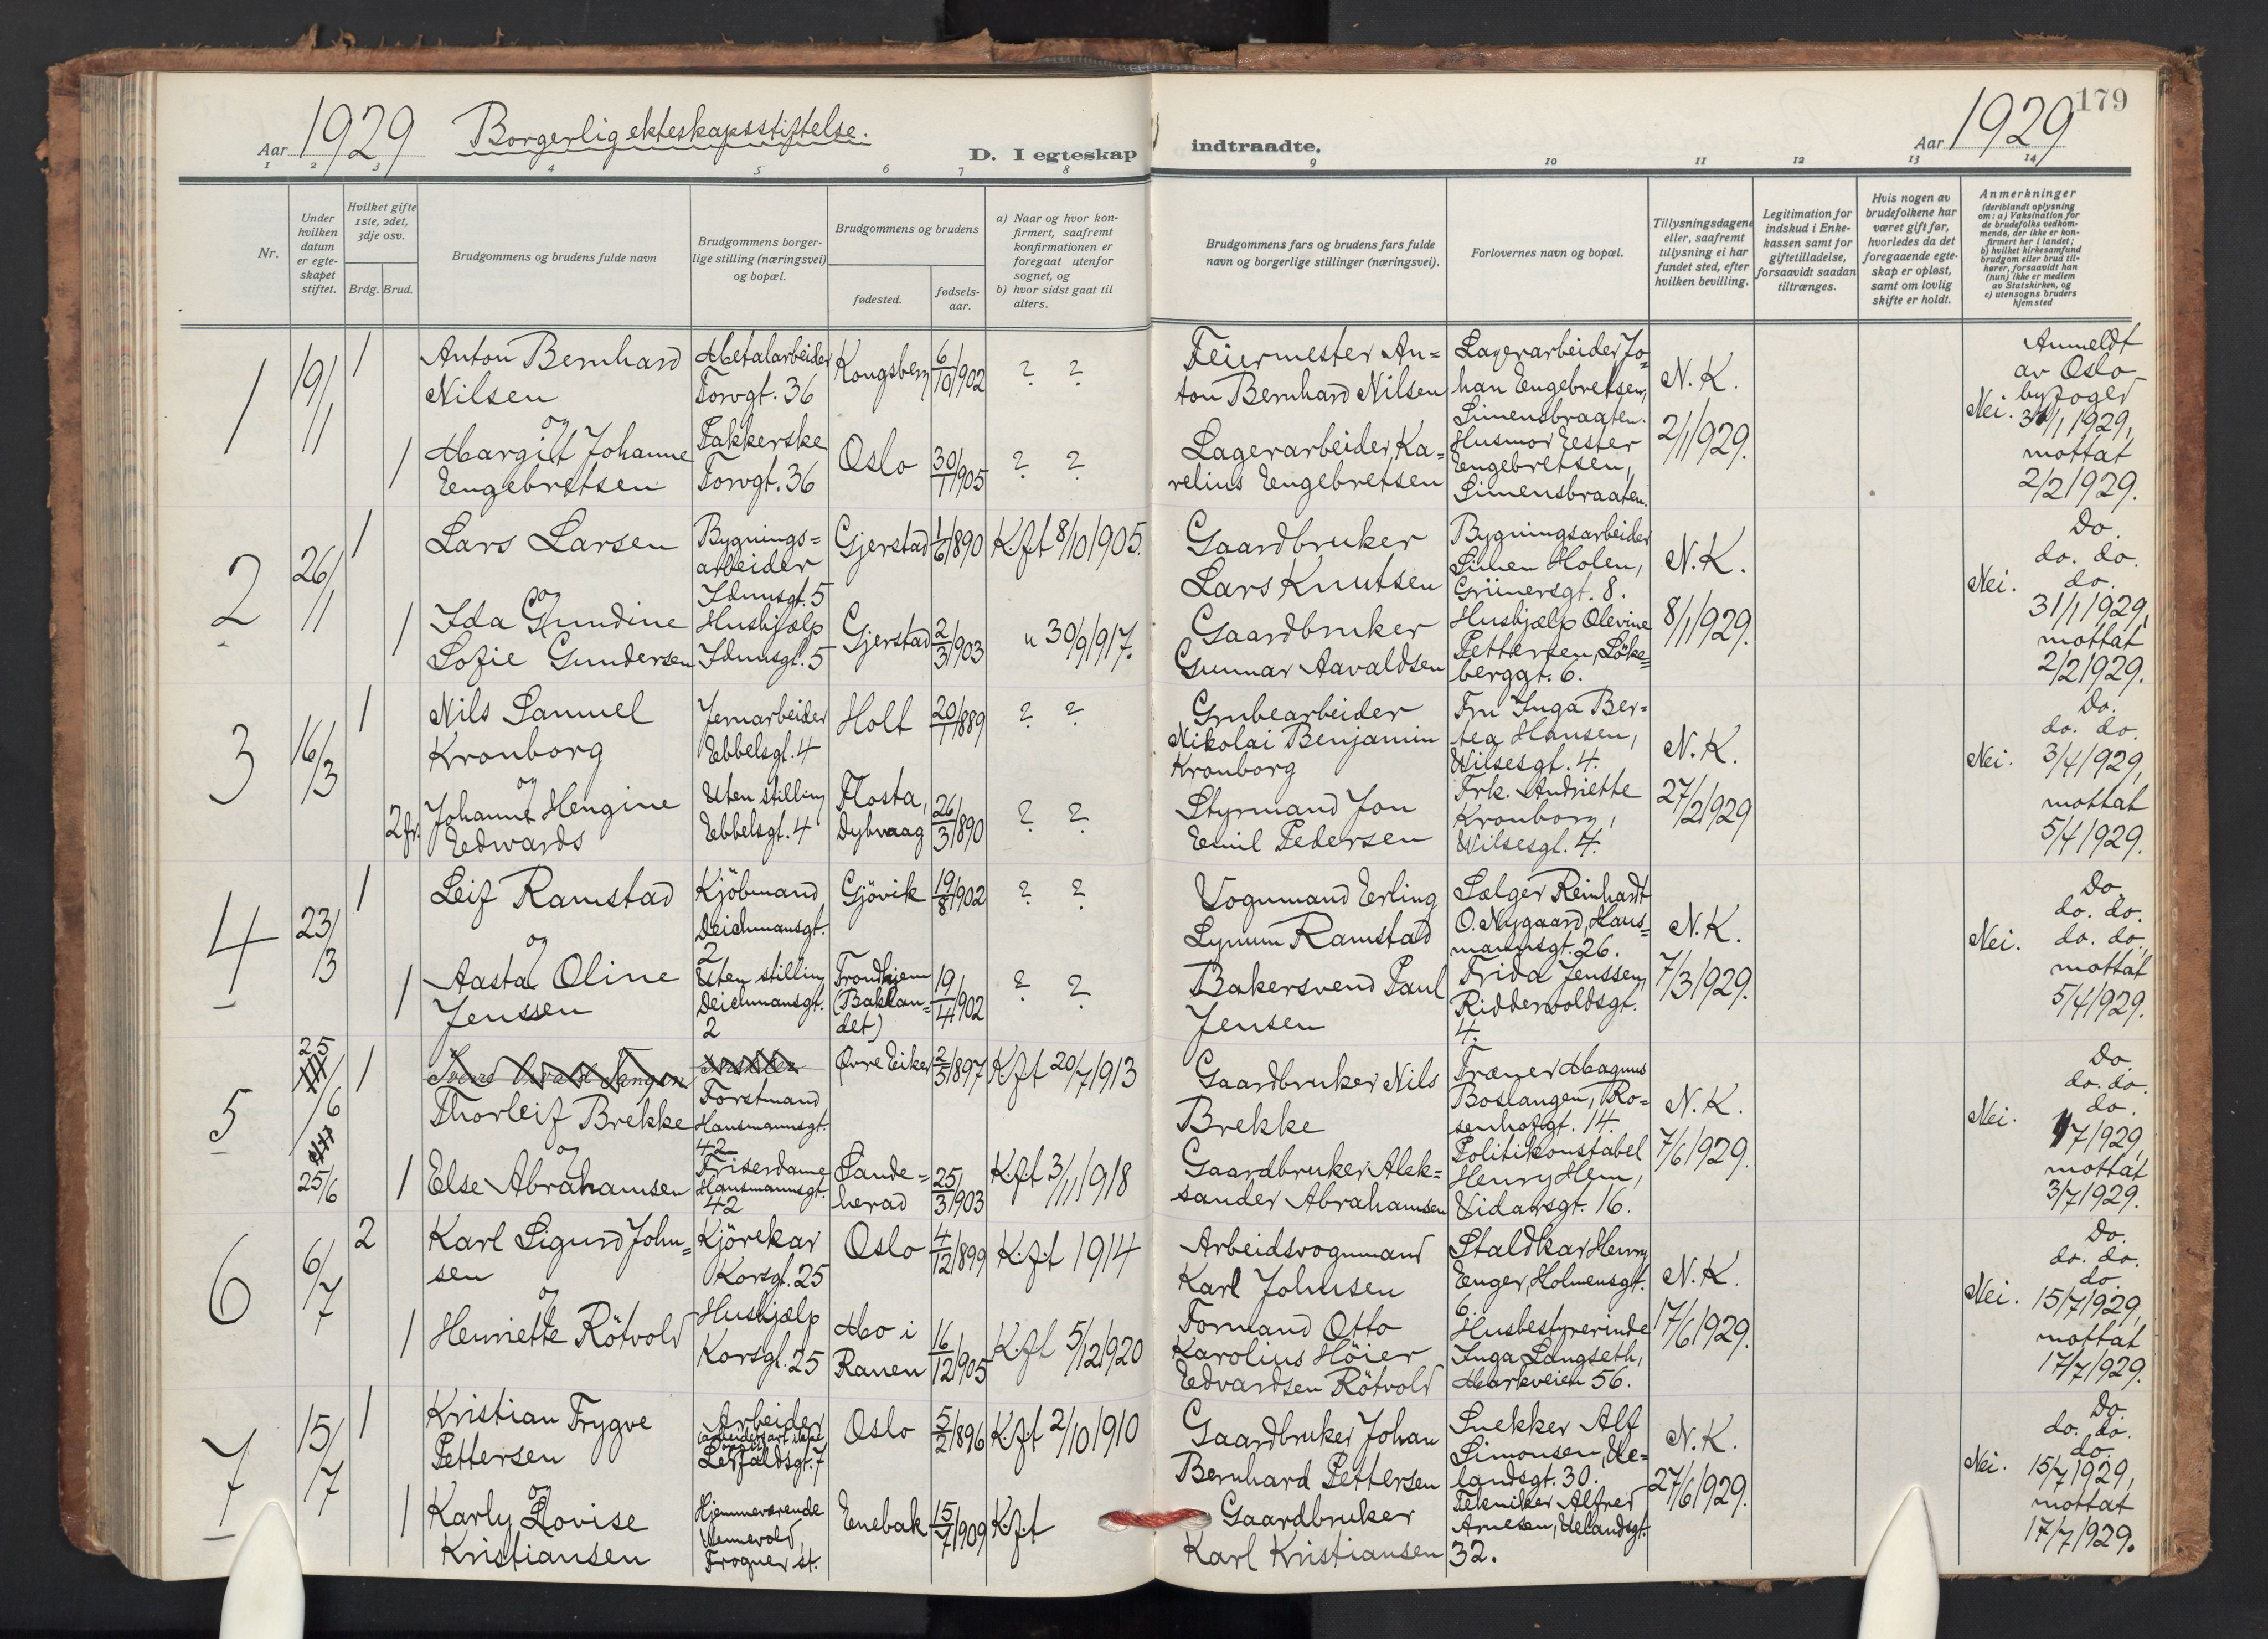 Aar 1929 Borgerlig ekteskapsstiftelse.
D. I egteskap
1 2 3 4 5 6 7 8
Nr.
Under hvilken datum er egteskapet stiftet.
Hvilket gifte 1ste, 2det, 3dje osv.
Brdg. Brud.
Brudgommens og brudens fulde navn
Brudgommens borgerlige stilling (næringsvei) og bopæl.
Brudgommens og brudens
fødested.
fødsels-aar.
a) Naar og hvor konfirmert, saafremt konfirmationen er foregaat utenfor sognet, og
b) hvor sidst gaat til alters.
179
indtraadte.
Aar 1929
9 10 11 12 13 14
Brudgommens fars og brudens fars fulde navn og borgerlige stillinger (næringsvei).
Forlovernes navn og bopæl.
Tillysningsdagene eller, saafremt tillysning ei har fundet sted, efter hvilken bevilling.
Legitimation for indskud i Enkekassen samt for giftetilladelse, forsaavidt saadan tiltrænges.
Hvis nogen av brudefolkene har været gift før, hvorledes da det foregaaende egteskap er opløst, samt om lovlig skifte er holdt.
Anmerkninger
(deriblandt oplysning om: a) Vaksination for de brudefolks vedkommende, der ikke er konfirmert her i landet; b) hvilket kirkesamfund brudgom eller brud tilhører, forsaavidt han (hun) ikke er medlem av Statskirken, og c) utensogns bruders hjemsted
1 19/1 1 Anton Bernhard Nilsen Metalarbeider Torvgt. 36 Kongsberg 6/10 1902 ? ?
og
1 Margit Johanne Engebretsen Pakkerske Torvgt. 36 Oslo 30/1 1905 ? ?
Feiermester Anton Bernhard Nilsen
Lagerarbeider Karelius Engebretsen
Lagerarbeider Johan Engebretsen, Simensbraaten.
Husmor Ester Engebretsen, Simensbraaten.
N.K. 2/1 1929.
Nei. Anmeldt av Oslo byfoged 31/1 1929, mottat 2/2 1929.
2 26/1 1 Lars Larsen Bygnings=arbeider Idunsgt. 5 Gjerstad 1/6 1890 Kft 8/10 1905.
og
1 Ida Gundine Sofie Gundersen Hushjælp Idunsgt. 5 Gjerstad 2/3 1903 " 30/9 1917.
Gaardbruker Lars Knutsen
Gaardbruker Gunnar Aavaldsen
Bygningsarbeider Simen Holen, Grünersgt. 8.
Hushjælp Olevine Pettersen, Løke=berggt. 6.
N.K. 8/1 1929.
Nei. Do. do. do. do. 31/1 1929, mottat 2/2 1929.
3 16/3 1 Nils Samuel Kronborg Jernarbeider Ebbelsgt. 4 Holt 20/1 1889 ? ?
og
2 fr. Johanne Hengine Edwards Uten stilling Ebbelsgt. 4 Flosta, Dybvaag 26/3 1890 ? ?
Grubearbeider Nikolai Benjamin Kronborg
Styrmand Jon Emil Pedersen
Fru Inga Bertea Hansen, Wilsesgt. 4.
Frk. Andriette Kronborg, Wilsesgt. 4.
N.K. 27/2 1929
Nei. Do. do. do. 3/4 1929, mottat 5/4 1929.
4 23/3 1 Leif Ramstad Kjöbmand, Deichmansgt. 2 Gjövik 19/8 1902 ? ?
og
1 Aasta Oline Jenssen Uten stilling Deichmansgt. 2 Trondhjem (Baklan=det) 19/4 1902 ? ?
Vognmand Erling Lynum Ramstad
Bakersvend Paul Jensen
Sælger Reinhardt O. Nygaard, Haus=mannsgt. 26.
Frida Jenssen, Riddervoldsgt. 4.
N.K. 7/3 1929.
Nei. Do. do. do. do. do. mottat 5/4 1929.
5 25/6 25/6 1 Thorleif Brekke Forstmand Hausmannsgt. 42 Øvre Eiker 2/5 1897 Kft 20/7 1913
og
1 Else Abrahamsen Friserdame Hausmannsgt. 42 Sande=herad 25/3 1903 Kft 3/11 1918
Gaardbruker Nils Brekke
Gaardbruker Alek=sander Abrahamsen
Træner Magnus Boslangen, Ro=senhofgt. 14.
Politikonstabel Henry Hem, Vidarsgt. 16.
N.K. 7/6 1929.
Nei. Do. do. do. do. 1/7 1929, mottat 3/7 1929.
6 6/7 2 Karl Sigurd John=sen Kjörekar Korsgt. 25 Oslo 4/12 1899 Kft 1914
og
1 Henriette Rötvold Hushjælp Korsgt. 25 Mo i Ranen 16/12 1905 Kft 5/12 1920
Arbeidsvognmand Karl Johnsen
Formand Otto Karolius Höier Edvardsen Rötvold
Staldkar Henry Enger, Holmensgt. 6.
Husbestyrerinde Inga Langseth, Markveien 56.
N.K. 17/6 1929.
Nei. Do. do. do. do. 15/7 1929, mottat 17/7 1929.
7 15/7 1 Kristian Trygve Pettersen Arbeider Oslo 5/2 1896 Kft 2/10 1910
og
1 Karly Lovise Kristiansen Hjemmeværende Frogner st. Enebak 15/7 1909 Kft
Gaardbruker Johan Bernhard Pettersen
Gaardbruker Karl Kristiansen
Snekker Alf Simonsen, Ue=landsgt. 30.
Tekniker Alfred Arnesen, Uelandsgt. 32.
N.K. 27/6 1929.
Nei. Do. do. do. do. 15/7 1929, mottat 17/7 1929.